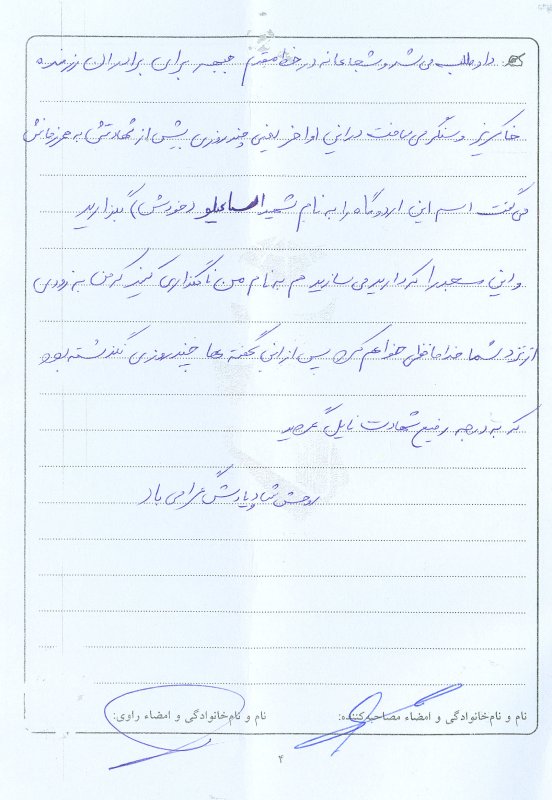 داوطلب می‌شد و شجاعانه در خط مقدم جبهه برای برادران رزمنده
خاکریز و سنگر می‌ساخت در این اواخر یعنی چند روزی پیش از شهادتش به همرزمانش
می‌گفت اسم این اردوگاه را به نام شهید اسماعیلو (خودش) بگذارید
و این مسجد را که دارید می‌سازید هم به نام من نامگذاری کنید که من به زودی
از نزد شما خداحافظی خواهم کرد پس از این گفته ها چند روزی نگذشته بود
که به درجه رفیع شهادت نایل گردید
روحش شاد و یادش گرامی باد
نام و نام‌خانوادگی و امضاء مصاحبه‌کننده:
نام و نام‌خانوادگی و امضاء راوی:
۴